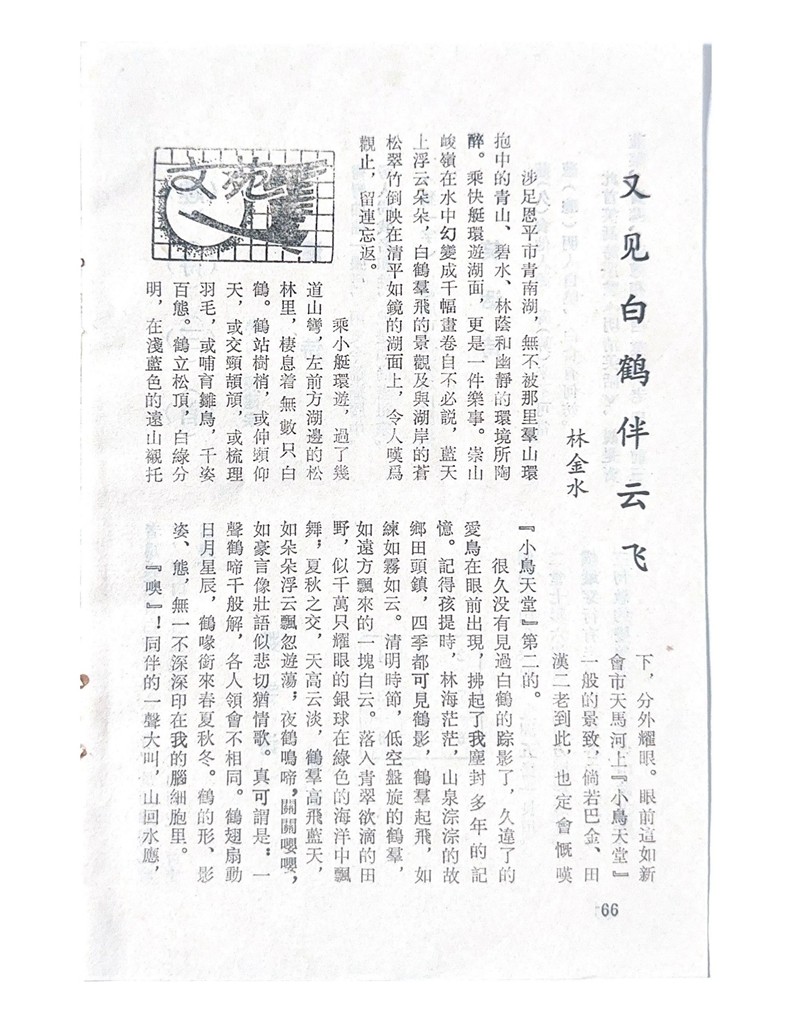 又见白鹤伴云飞
林金水
涉足恩平市青南湖，無不被那里羣山環
抱中的青山、碧水、林蔭和幽靜的環境所陶
醉。乘快艇環遊湖面，更是一件樂事。崇山
峻嶺在水中幻變成千幅畫卷自不必説，藍天
上浮云朵朵，白鶴羣飛的景觀及與湖岸的蒼
松翠竹倒映在清平如鏡的湖面上，令人嘆爲
觀止，留連忘返。
文苑
乘小艇環遊，過了幾
道山彎，左前方湖邊的松
林里，棲息着無數只白
鶴。鶴站樹梢，或伸頸仰
天，或交頸頡頏，或梳理
羽毛，或哺育雛鳥，千姿
百態。鶴立松頂，白綠分
明，在淺藍色的遠山襯托
下，分外耀眼。眼前這如新
會市天馬河上『小鳥天堂』
一般的景致，倘若巴金、田
漢二老到此，也定會慨嘆
『小鳥天堂』第二的。
很久没有見過白鶴的踪影了，久違了的
愛鳥在眼前出現，拂起了我塵封多年的記
憶。記得孩提時，林海茫茫，山泉淙淙的故
鄉田頭鎮，四季都可見鶴影，鶴羣起飛，如
練如霧如云。清明時節，低空盤旋的鶴羣，
如遠方飄來的一塊白云。落入青翠欲滴的田
野，似千萬只耀眼的銀球在綠色的海洋中飄
舞；夏秋之交，天高云淡，鶴羣高飛藍天，
如朵朵浮云飄忽遊蕩；夜鶴鳴啼，關關嚶嚶，
如豪言像壯語似悲切猶情歌。真可謂是：一
聲鶴啼千般解，各人領會不相同。鶴翅扇動
日月星辰，鶴喙銜來春夏秋冬。鶴的形、影
姿、態，無一不深深印在我的腦細胞里。
『噢』！同伴的一聲大叫，山回水應，
66